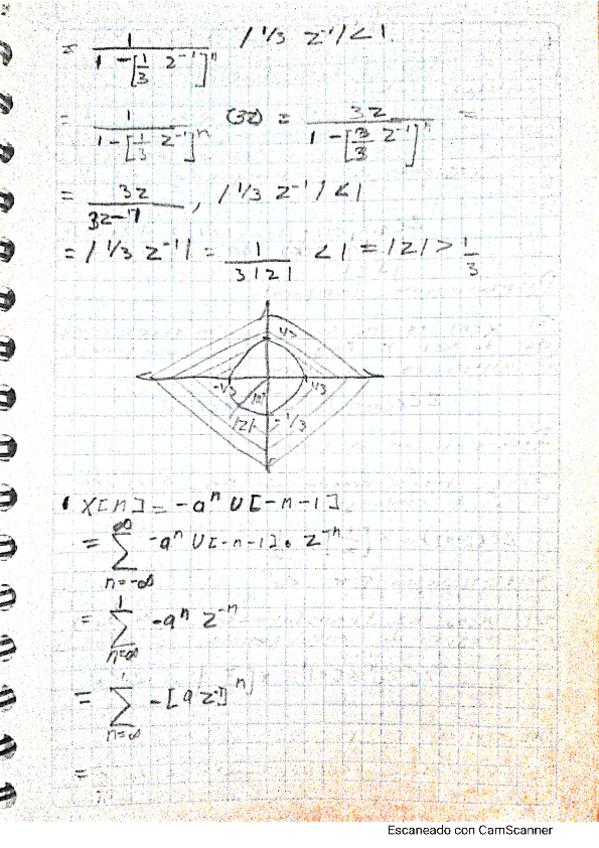 = 1 / (1 - [1/3 z⁻¹]ⁿ)   |1/3 z⁻¹| < 1.
= 1 / (1 - [1/3 z⁻¹]ⁿ) (3z) = 3z / (1 - [3/3 z⁻¹]ⁿ) =
= 3z / (3z-1), |1/3 z⁻¹| < 1
= |1/3 z⁻¹| = 1 / (3|z|) < 1 = |z| > 1/3
1/3
-1/3 1/3
|z| -1/3
• X[n] = -aⁿ U[-n-1]
= ∑_{n=-∞}^{∞} -aⁿ U[-n-1] • z⁻ⁿ
= ∑_{n=∞}^{1} -aⁿ z⁻ⁿ
= ∑_{n=∞}^{1} -[a z⁻¹]ⁿ
=
Escaneado con CamScanner